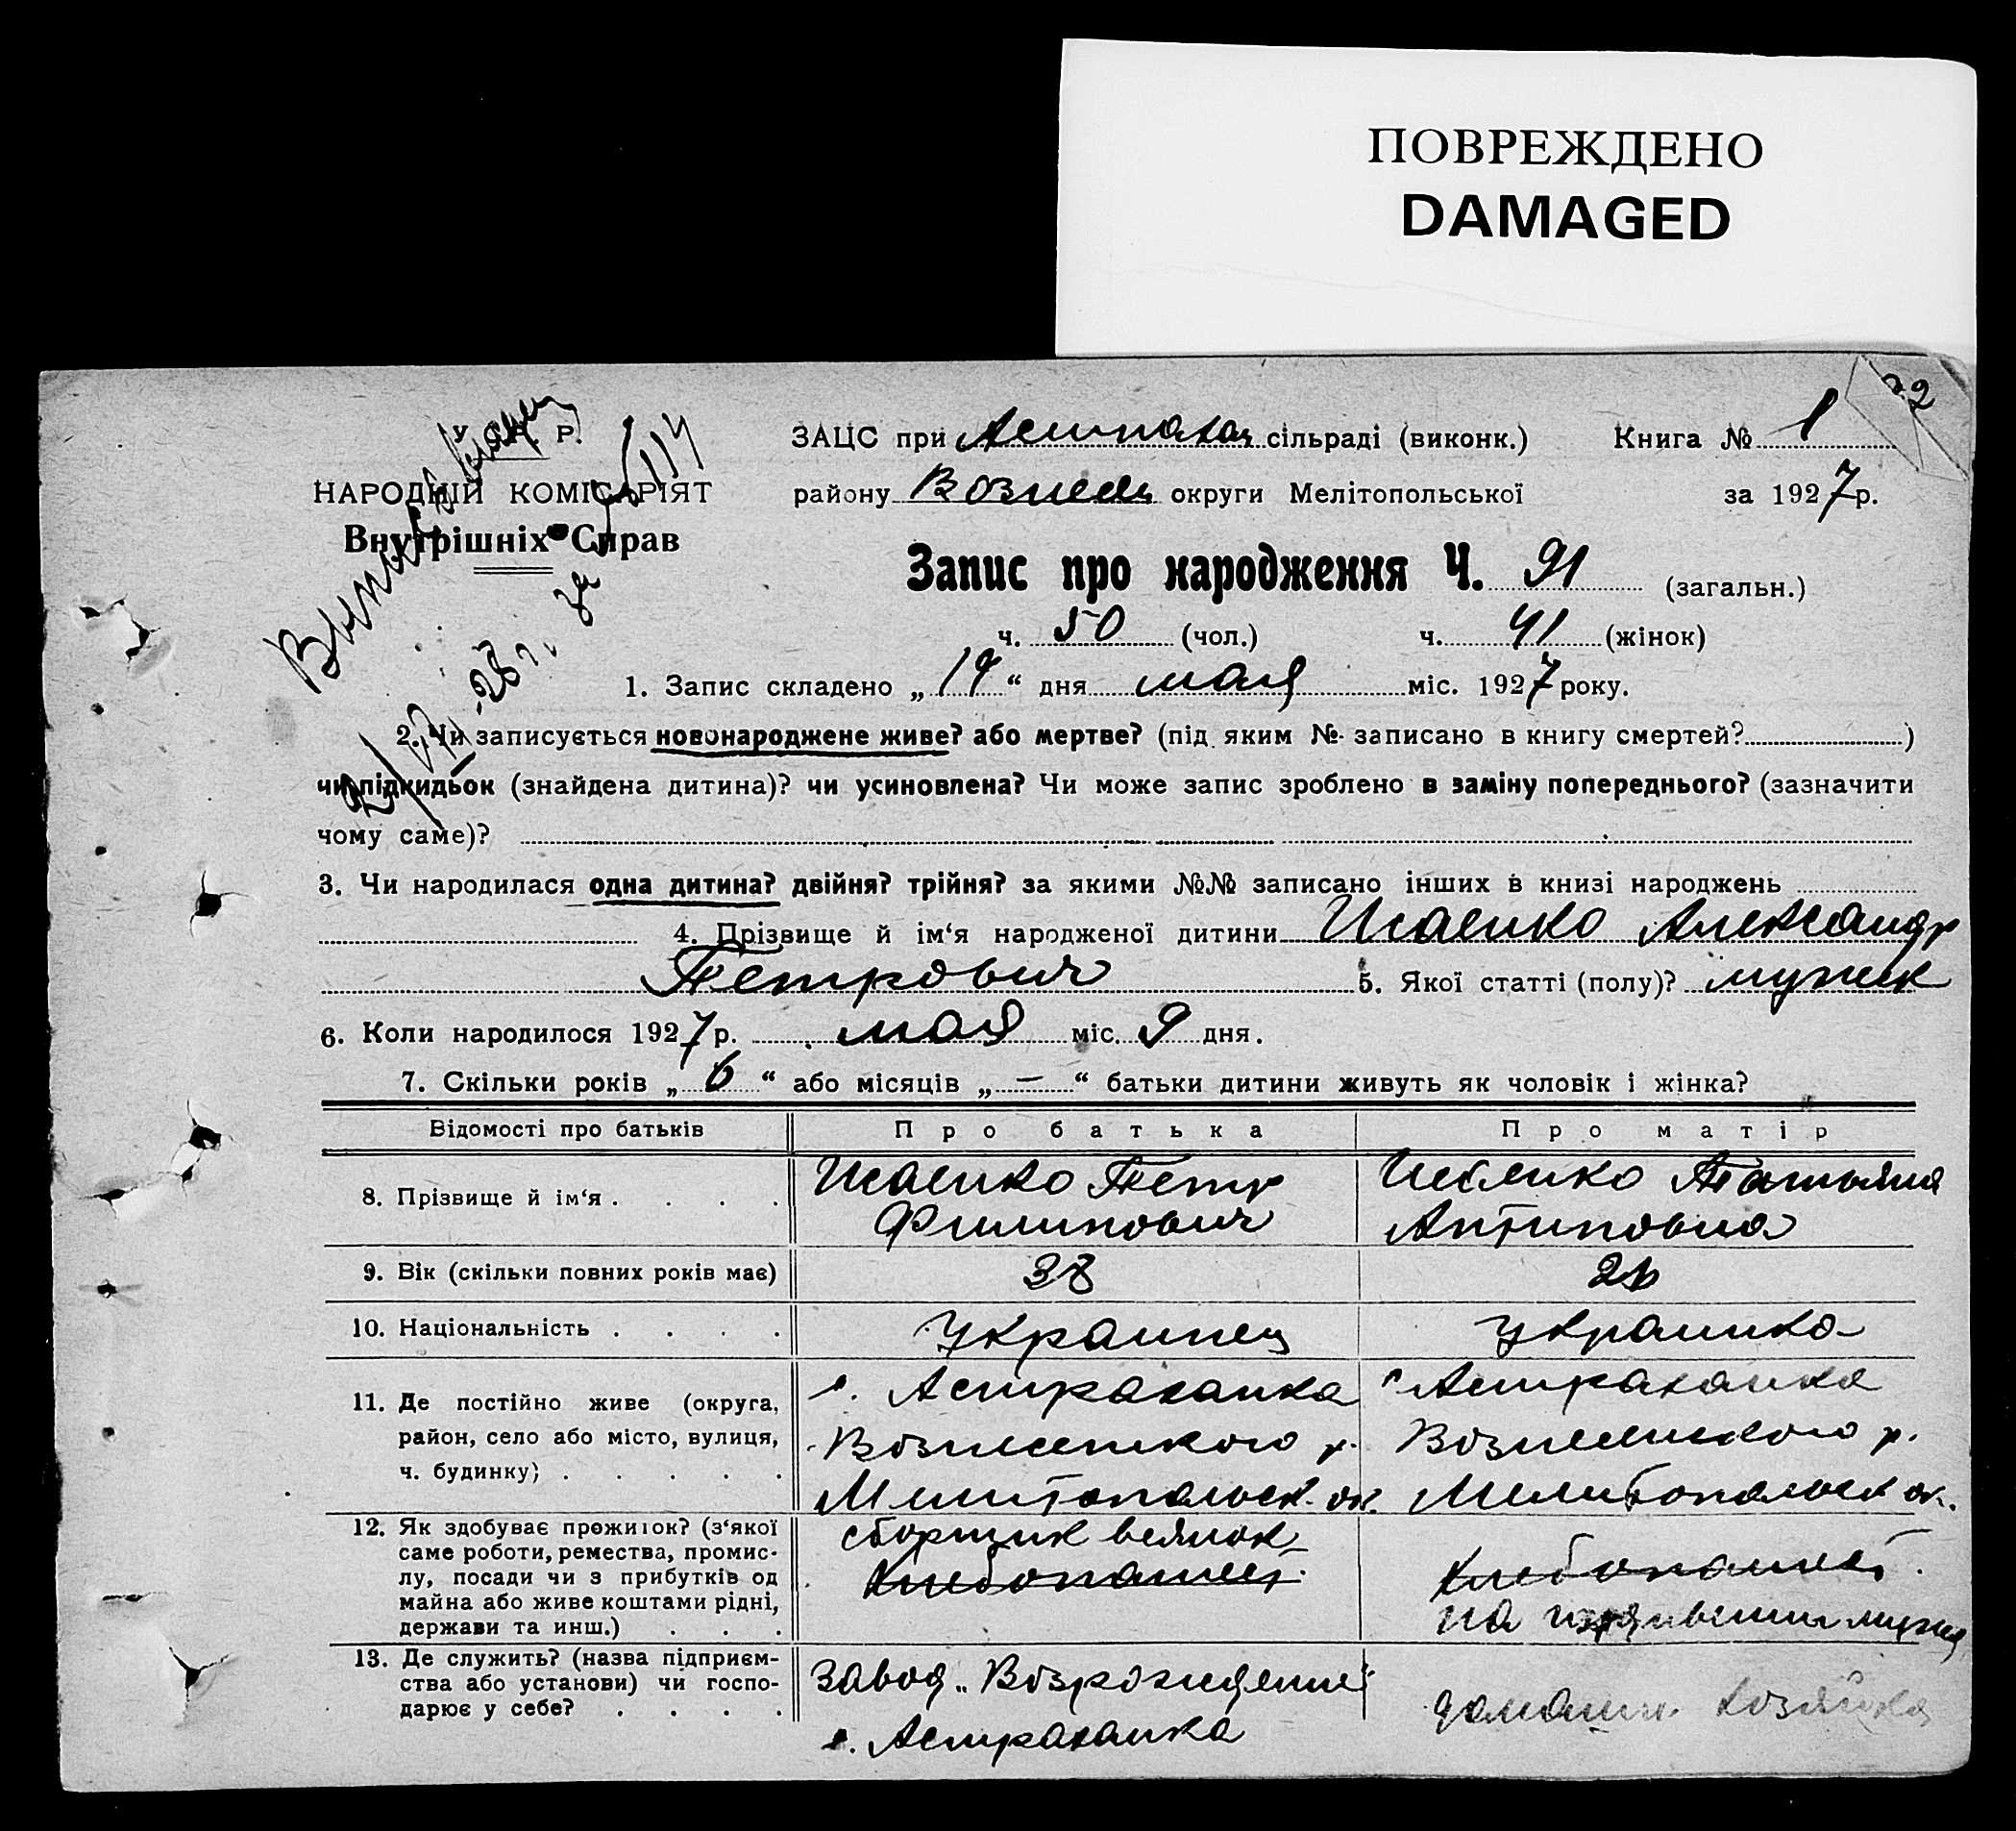 ПОВРЕЖДЕНО
DAMAGED
22
У. С. Р. Р.
ЗАЦС при Астрахан сільраді (виконк.) Книга № 1
НАРОДНІЙ КОМІСАРІЯТ
району Вознесен округи Мелітопольської за 1927 р.
Внутрішніх Справ
Запис про народження Ч. 91 (загальн.)
ч. 50 (чол.) ч. 41 (жінок)
за № 114
28 г.
1. Запис складено „19“ дня мая міс. 1927 року.
2. Чи записується новонароджене живе? або мертве? (під яким № записано в книгу смертей? )
чи підкидьок (знайдена дитина)? чи усиновлена? Чи може запис зроблено в заміну попереднього? (зазначити
чому саме)?
3. Чи народилася одна дитина? двійня? трійня? за якими №№ записано інших в книзі народжень
4. Прізвище й ім‘я народженої дитини Исаенко Александр
Петрович 5. Якої статті (полу)? мужск
6. Коли народилося 1927 р. мая міс. 9 дня.
7. Скільки років „6“ або місяців „—“ батьки дитини живуть як чоловік і жінка?
Відомості про батьків Про батька Про матір
8. Прізвище й ім‘я . . . . Исаенко Петр Исаенко Татьяна
Филипович Антиповна
9. Вік (скільки повних років має) 38 26
10. Національність . . . . Украинец Украинка
11. Де постійно живе (округа, с. Астраханка с Астраханка
район, село або місто, вулиця, Вознесенского р. Вознесенского р.
ч. будинку) . . . . . Мелитопольск. ок. Мелитопольск ок.
12. Як здобуває прожиток? (з‘якої сборщик веялок
саме роботи, ремества, промис- Хлебопашец. Хлебопашест.
лу, посади чи з прибутків од
майна або живе коштами рідні, на иждивении мужа
держави та инш.) . . .
13. Де служить? (назва підприєм- завод „Возрождение“
ства або установи) чи госпо- домашн. хозяйка
дарює у себе? . . . . с. Астраханка